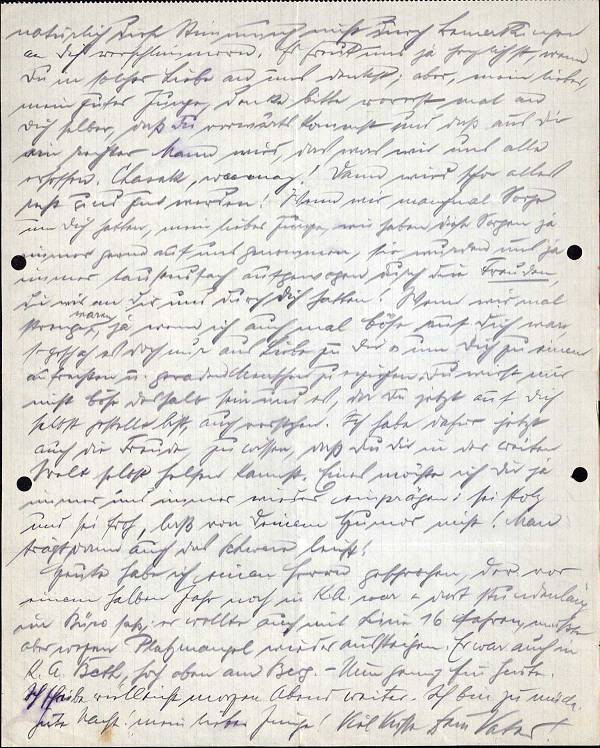 natürlich diese Stimmung nicht durch Bemerkungen
an Dich verschlimmern. Es freut uns ja herzlichst, wenn
Du in solcher Liebe an uns denkst; aber, mein lieber,
mein guter Junge, denke bitte vorerst mal an
Dich selber, daß Du vorwärts kommst und daß aus Dir
ein rechter Mann wird, das was wir uns alle
erhoffen. Chasak, weemaz! Dann wird schon alles
recht und gut werden! Wenn wir manchmal Sorge
um Dich hatten, mein lieber Junge, wir haben diese Sorgen ja
immer gerne auf uns genommen, sie wurden uns ja
immer tausendfach aufgewogen durch die Freuden,
die wir an Dir und durch Dich hatten! Wenn wir mal
streng waren, ja wenn ich auch mal böse auf Dich war,
so geschah es doch nur aus Liebe zu Dir u. um Dich zu einem
aufrechten u. geraden Menschen zu erziehen. Du wirst uns
nicht böse deshalb sein und es, da Du jetzt auf Dich
selbst gestellt bist, auch verstehen. Ich habe dafür jetzt
auch die Freude, zu wissen, daß Du Dir in der weiten
Welt selbst helfen kannst. Eines möchte ich Dir ja
immer und immer wieder einprägen: sei stolz
und sei froh, laß von Deinem Humor nicht! Man
trägt dann auch das Schwere leicht!
Heute habe ich einen Herrn gesprochen, der vor
einem halben Jahr noch in K.A. war u. dort stundenlang
im Büro saß, er wollte auch mit Linie 16 fahren, mußte
aber wegen Platzmangel wieder aussteigen. Er war auch in
K. A. Beth, hoch oben am Berg. - Nun genug für heute.
Ich schreibe vielleicht morgen Abend weiter. Ich bin zu müde.
Gute Nacht, mein lieber Junge! Viele Küsse Dein Vater